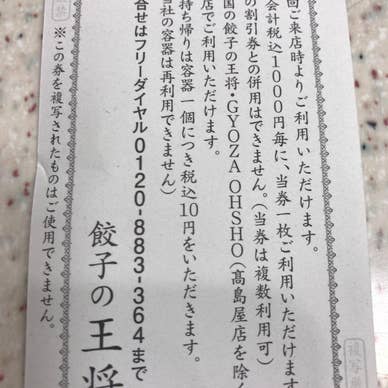 回ご来店時よりご利用いただけます。
会計税込1000円毎に、当券一枚ご利用いただけます
の割引券との併用はできません。（当券は複数利用可）
国の餃子の王将・GYOZA OHSHO（髙島屋店を除く
店でご利用いただけます。
持ち帰りは容器一個につき税込10円をいただきます。
当社の容器は再利用できません）
合せはフリーダイヤル0120-883-364まで
餃子の王将
※この券を複写されたものはご使用できません。
複写厳